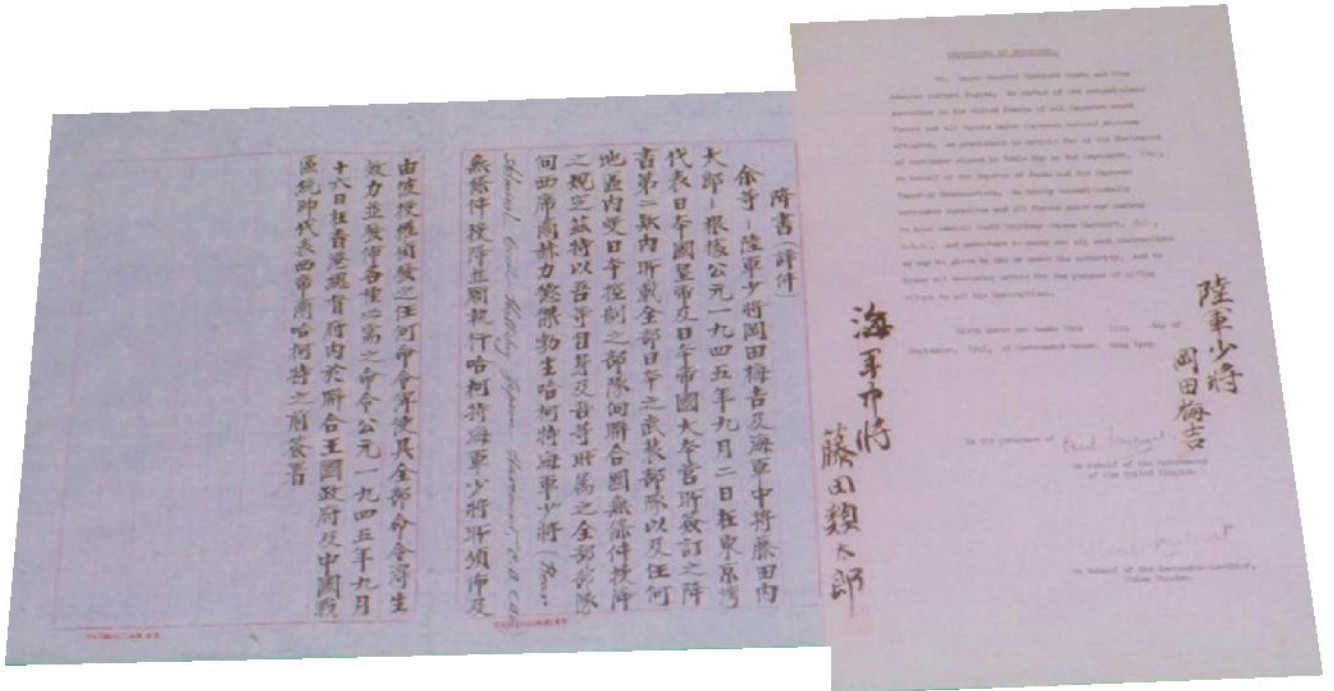 降書(譯件)
余等-陸軍少將岡田梅吉及海軍中將藤田內
大郎-根據公元一九四五年九月二日在東京灣
代表日本國皇帝及日本帝國大本營所簽訂之降
書第二款內所載全部日本之武裝部隊以及任何
地區內受日本控制之部隊向聯合國無條件投降
之規定茲特以吾等自身及吾等所屬之全部部隊
向西席爾赫力德傑勃生哈柯特海軍少將(Rear
Admiral Cecil Halliday Jepson Harcourt C.B. C.B.E.)
無條件投降並願執行哈柯特海軍少將所頒佈及
由彼授權頒發之任何命令俾使其全部命令得生
效力並發佈各種必需之命令公元一九四五年九月
十六日在香港總督府內於聯合王國政府及中國戰
區統帥代表西席爾哈柯特之前簽署
INSTRUMENT OF SURRENDER.
We, Major General Umekichi Okada and Vice
Admiral Ruitaro Fujita, in virtue of the unconditional
surrender to the Allied Powers of all Japanese Armed
Forces and all forces under Japanese control wherever
situated, as proclaimed in Article Two of the Instrument
of Surrender signed in Tokio Bay on 2nd September, 1945,
on behalf of the Emperor of Japan and the Japanese
Imperial Headquarters, do hereby unconditionally
surrender ourselves and all forces under our control
to Rear Admiral Cecil Halliday Jepson Harcourt, C.B.,
C.B.E., and undertake to carry out all such instructions
as may be given by him or under his authority, and to
issue all necessary orders for the purpose of giving
effect to all his instructions.
Given under our hands this 16th day of
September, 1945, at Government House, Hong Kong.
陸軍少將
岡田梅吉
海軍中將
藤田類太郎
In the presence of
On behalf of the Government
of the United Kingdom.
On behalf of the Commander-in-Chief,
China Theatre.